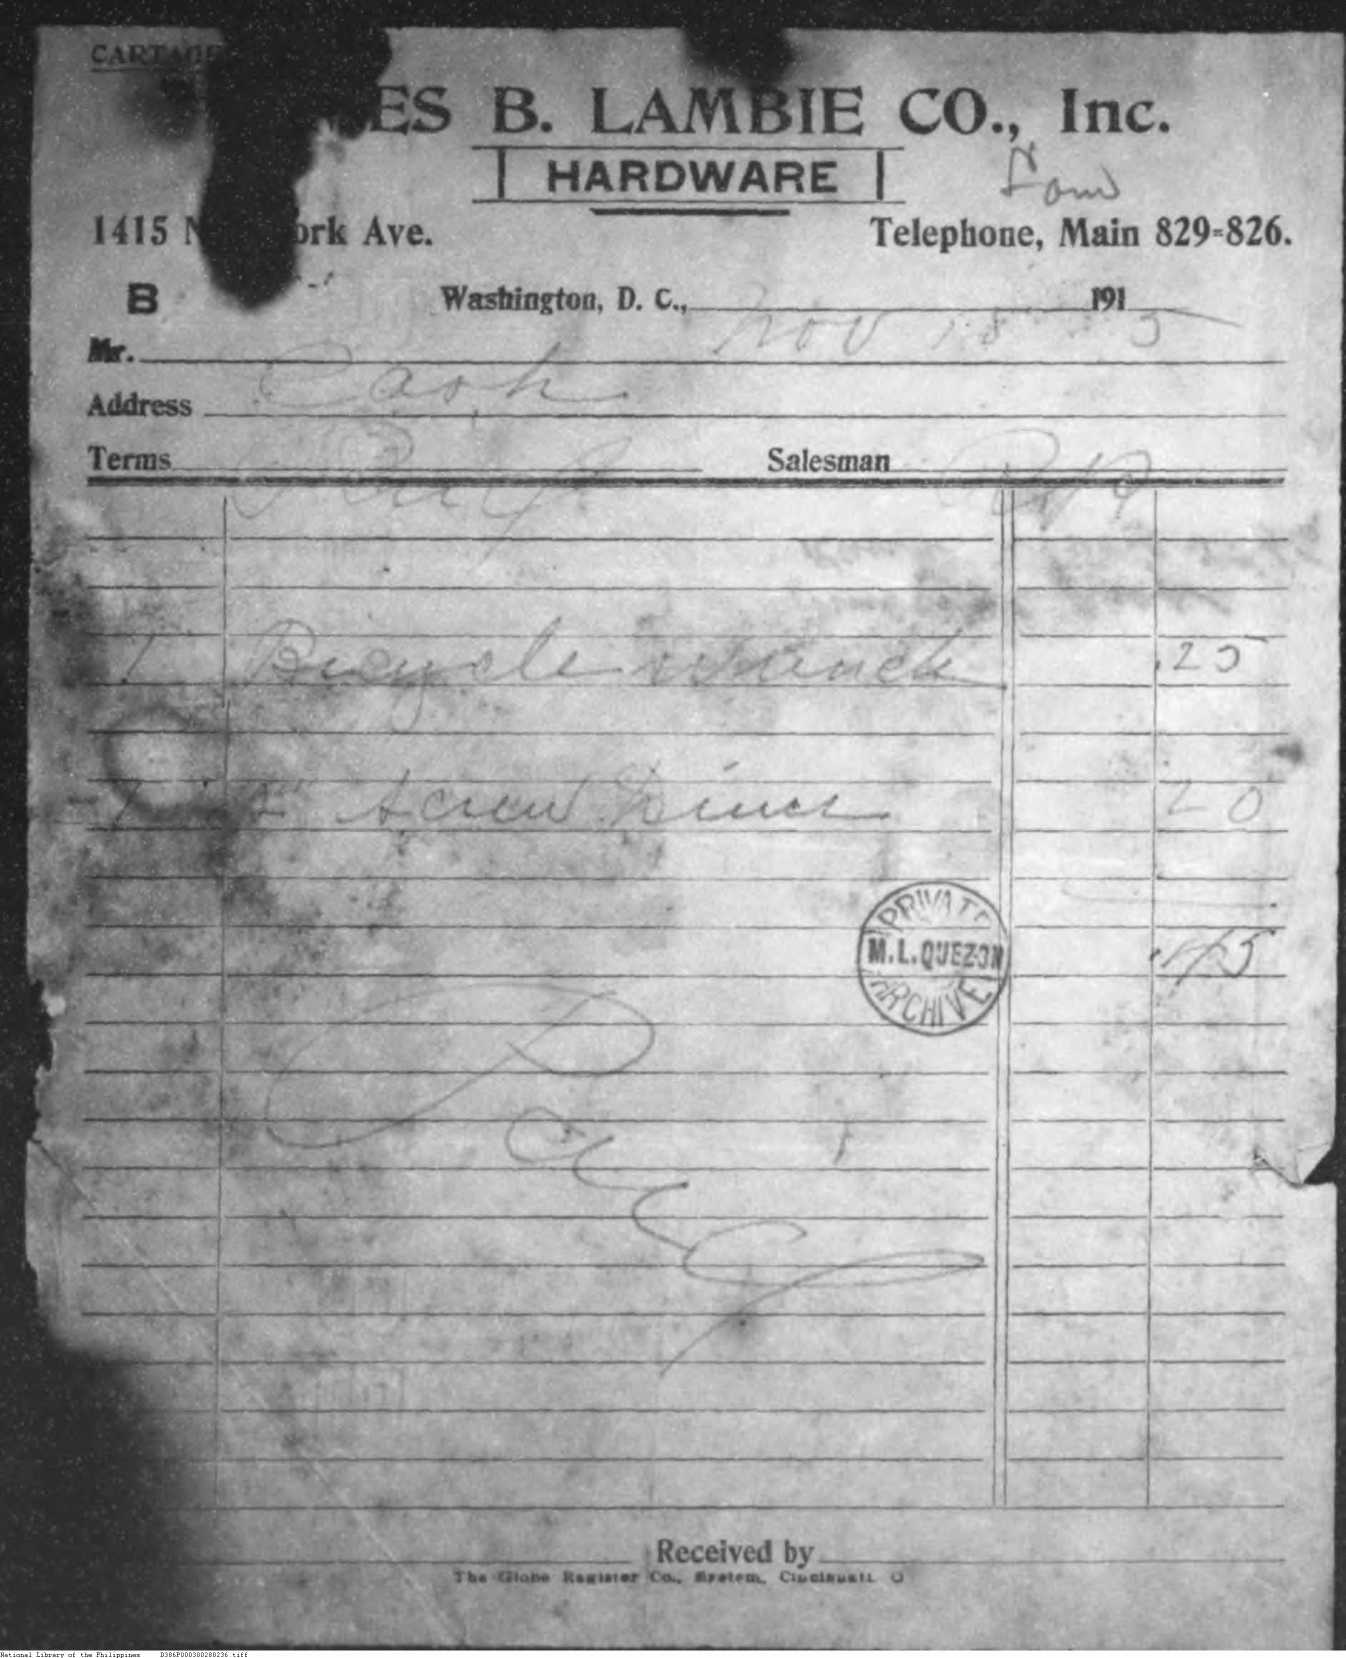 CARTAGE
ES B. LAMBIE CO., Inc.
HARDWARE
1415 N ork Ave.
Telephone, Main 829-826.
B
Washington, D. C., Nov 18 1915
Mr. Cash
Address
Terms
Salesman
1 Bicycle Wrench .25
1 2" Screw Driver 20
.45
PRIVATE
M.L.QUEZON
ARCHIVE
Received by
The Globe Register Co., System, Cincinnati. O
National Library of the Philippines D386P000300288236.tiff